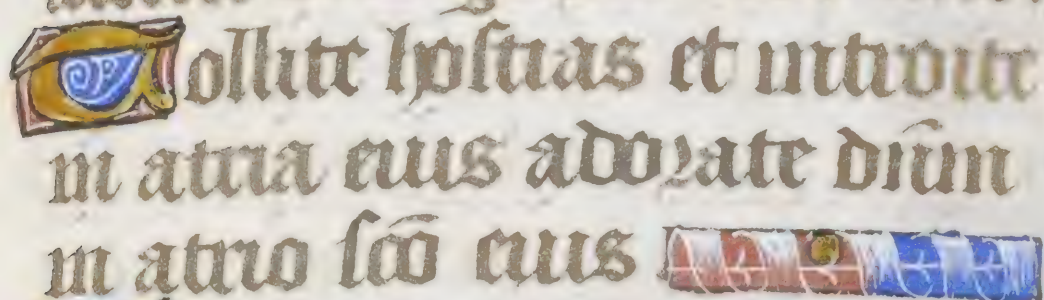 Tollite hostias et introite
in atria eius adorate dn̄m
in atrio scō eius